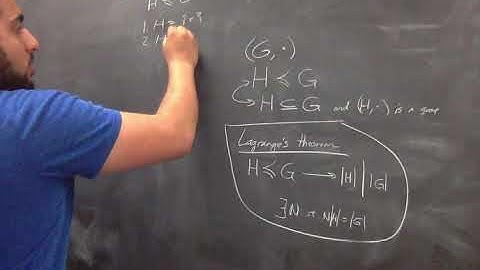 H ≤ G
1. H =
2. H
(G, ·)
H ≤ G
H ⊆ G and (H, ·) is a group
Lagrange's theorem
H ≤ G → |H| | |G|
∃N st N|H| = |G|